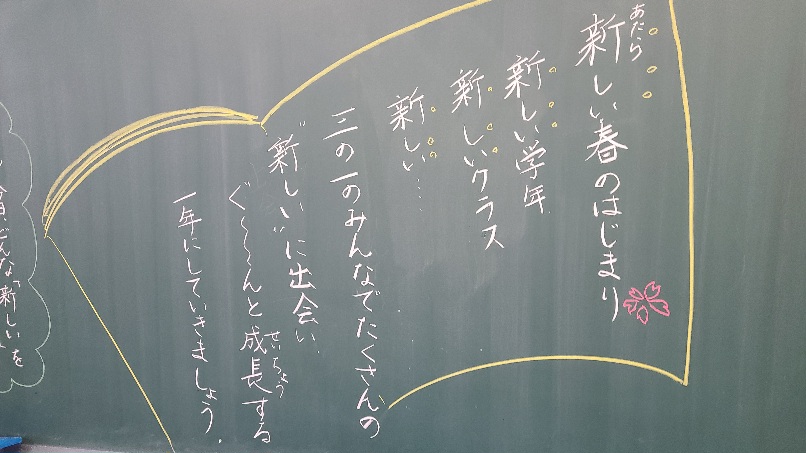 あたら
新しい春のはじまり
新しい学年
新しいクラス
新しい…
三の一のみんなでたくさんの
"新しい"に出会い、
ぐ〜〜〜んと成長する
せいちょう
一年にしていきましょう.
どんな「新しい」を